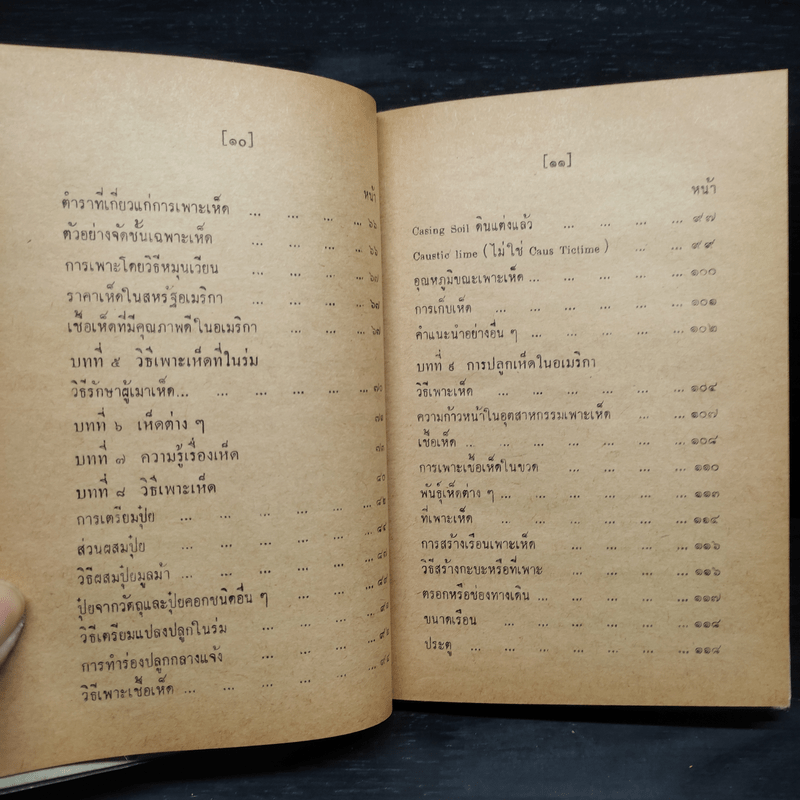 [๑๐]
หน้า
ตำราที่เกี่ยวแก่การเพาะเห็ด ... ... ... ... ๖๖
ตัวอย่างจัดชั้นเฉพาะเห็ด ... ... ... ... ๖๖
การเพาะโดยวิธีหมุนเวียน ... ... ... ... ๖๗
ราคาเห็ดในสหรัฐอเมริกา ... ... ... ... ๖๗
เชื้อเห็ดที่มีคุณภาพดีในอเมริกา ... ... ... ๖๗
บทที่ ๕ วิธีเพาะเห็ดที่ในร่ม
วิธีรักษาผู้เมาเห็ด... ... ... ... ... ๗๐
บทที่ ๖ เห็ดต่าง ๆ
บทที่ ๗ ความรู้เรื่องเห็ด
บทที่ ๘ วิธีเพาะเห็ด
การเตรียมปุ๋ย ... ... ... ... ...
ส่วนผสมปุ๋ย ... ... ... ... ...
วิธีผสมปุ๋ยมูลม้า ... ... ... ... ...
ปุ๋ยจากวัตถุและปุ๋ยคอกชนิดอื่น ๆ ... ... ...
วิธีเตรียมแปลงปลูกในร่ม ... ... ... ...
การทำร่องปลูกกลางแจ้ง ... ... ... ...
วิธีเพาะเชื้อเห็ด ... ... ... ... ...
[๑๑]
หน้า
Casing Soil ดินแต่งแล้ว ... ... ... ... ๙๗
Caustic lime (ไม่ใช่ Caus Tictime) ... ... ๙๙
อุณหภูมิขณะเพาะเห็ด ... ... ... ... ... ๑๐๐
การเก็บเห็ด ... ... ... ... ... ๑๐๑
คำแนะนำอย่างอื่น ๆ ... ... ... ... ๑๐๒
บทที่ ๙ การปลูกเห็ดในอเมริกา
วิธีเพาะเห็ด ... ... ... ... ... ๑๐๔
ความก้าวหน้าในอุตสาหกรรมเพาะเห็ด ... ... ๑๐๗
เชื้อเห็ด ... ... ... ... ... ... ๑๐๘
การเพาะเชื้อเห็ดในขวด ... ... ... ... ๑๑๐
พันธุ์เห็ดต่าง ๆ ... ... ... ... ... ๑๑๓
ที่เพาะเห็ด ... ... ... ... ... ๑๑๔
การสร้างเรือนเพาะเห็ด ... ... ... ... ๑๑๖
วิธีสร้างกะบะหรือที่เพาะ ... ... ... ... ๑๑๖
ตรอกหรือช่องทางเดิน ... ... ... ... ... ๑๑๗
ขนาดเรือน ... ... ... ... ... ๑๑๘
ประตู ... ... ... ... ... ... ๑๑๘